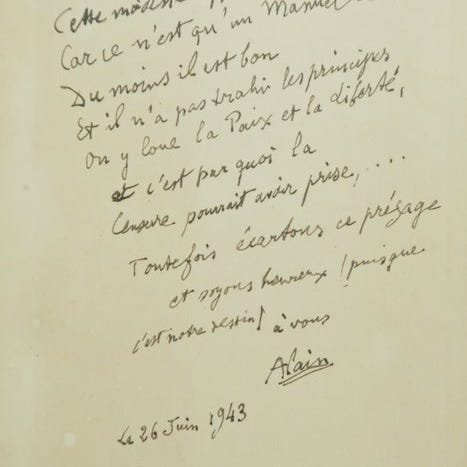 Cette modeste
Car ce n'est qu'un Manuel
Du moins il est bon
Et il n'a pas trahi les principes
On y loue la Paix et la Liberté,
et c'est par quoi la
Censure pourrait avoir prise, ...
Toutefois écartons ce présage
et soyons heureux ! puisque
c'est notre destin ! à vous
Alain
Le 26 Juin 1943